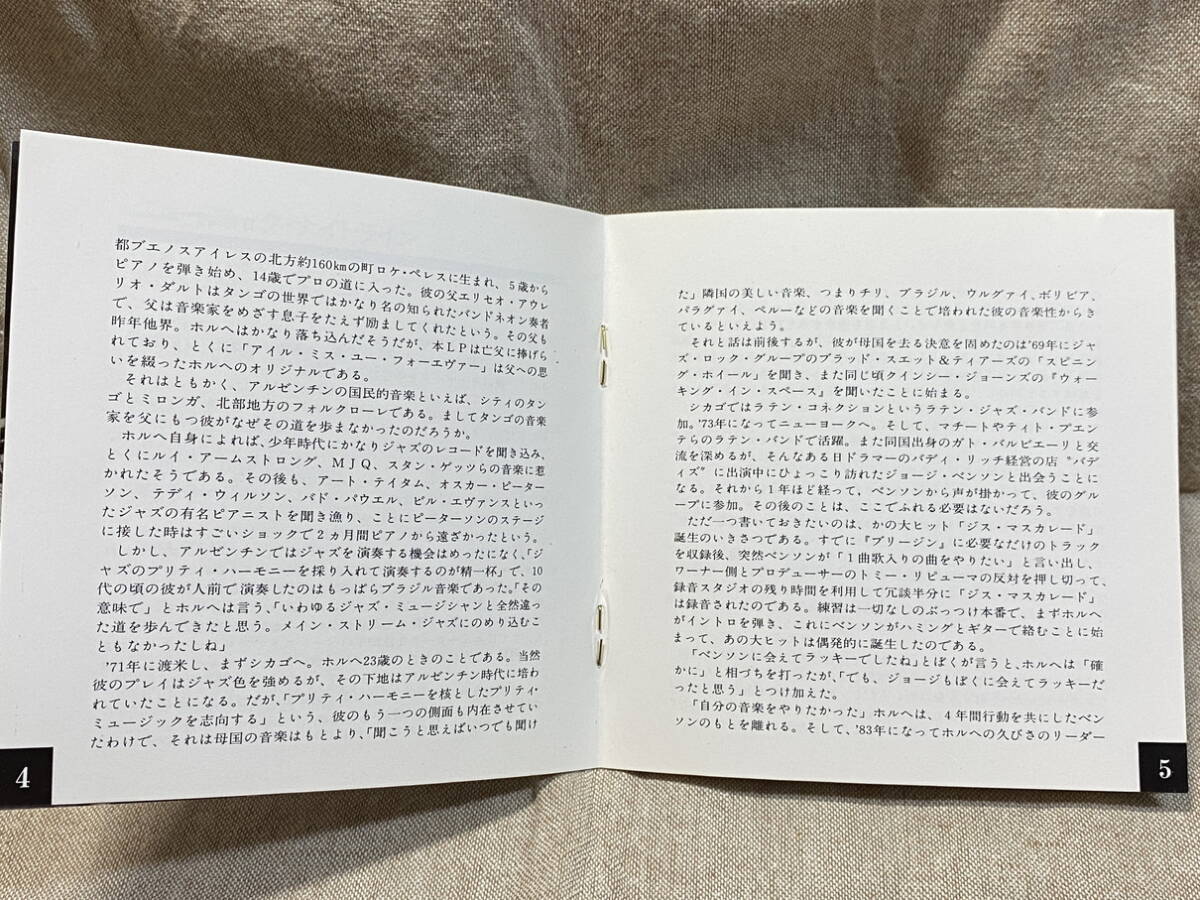 都ブエノスアイレスの北方約160kmの町ロケ・ペレスに生まれ、5歳から
ピアノを弾き始め、14歳でプロの道に入った。彼の父エリセオ・アウレ
リオ・ダルトはタンゴの世界ではかなり名の知られたバンドネオン奏者
で、父は音楽家をめざす息子をたえず励ましてくれたという。その父も
昨年他界。ホルヘはかなり落ち込んだそうだが、本LPは亡父に捧げら
れており、とくに「アイル・ミス・ユー・フォーエヴァー」は父への思
いを綴ったホルヘのオリジナルである。
それはともかく、アルゼンチンの国民的音楽といえば、シティのタン
ゴとミロンガ、北部地方のフォルクローレである。ましてタンゴの音楽
家を父にもつ彼がなぜその道を歩まなかったのだろうか。
ホルヘ自身によれば、少年時代にかなりジャズのレコードを聞き込み、
とくにルイ・アームストロング、MJQ、スタン・ゲッツらの音楽に惹
かれたそうである。その後も、アート・テイタム、オスカー・ピーター
ソン、テディ・ウィルソン、バド・パウエル、ビル・エヴァンスといっ
たジャズの有名ピアニストを聞き漁り、ことにピーターソンのステージ
に接した時はすごいショックで2ヵ月間ピアノから遠ざかったという。
しかし、アルゼンチンではジャズを演奏する機会はめったになく、「ジ
ャズのプリティ・ハーモニーを採り入れて演奏するのが精一杯」で、10
代の頃の彼が人前で演奏したのはもっぱらブラジル音楽であった。「その
意味で」とホルヘは言う、「いわゆるジャズ・ミュージシャンと全然違っ
た道を歩んできたと思う。メイン・ストリーム・ジャズにのめり込むこ
ともなかったしね」
'71年に渡米し、まずシカゴへ。ホルヘ23歳のときのことである。当然
彼のプレイはジャズ色を強めるが、その下地はアルゼンチン時代に培わ
れていたことになる。だが、「プリティ・ハーモニーを核としたプリティ・
ミュージックを志向する」という、彼のもう一つの側面も内在させてい
たわけで、それは母国の音楽はもとより、「聞こうと思えばいつでも聞け
4
た」隣国の美しい音楽、つまりチリ、ブラジル、ウルグァイ、ボリビア、
パラグァイ、ペルーなどの音楽を聞くことで培われた彼の音楽性からき
ているといえよう。
それと話は前後するが、彼が母国を去る決意を固めたのは'69年にジャ
ズ・ロック・グループのブラッド・スエット&ティアーズの「スピニン
グ・ホイール」を聞き、また同じ頃クインシー・ジョーンズの『ウォー
キング・イン・スペース』を聞いたことに始まる。
シカゴではラテン・コネクションというラテン・ジャズ・バンドに参
加。'73年になってニューヨークへ。そして、マチートやティト・プエン
テらのラテン・バンドで活躍。また同国出身のガト・バルビエーリと交
流を深めるが、そんなある日ドラマーのバディ・リッチ経営の店〝バデ
ィズ〟に出演中にひょっこり訪れたジョージ・ベンソンと出会うことに
なる。それから1年ほど経って、ベンソンから声が掛かって、彼のグル
ープに参加。その後のことは、ここでふれる必要はないだろう。
ただ一つ書いておきたいのは、かの大ヒット「ジス・マスカレード」
誕生のいきさつである。すでに『ブリージン』に必要なだけのトラック
を収録後、突然ベンソンが「1曲歌入りの曲をやりたい」と言い出し、
ワーナー側とプロデューサーのトミー・リピューマの反対を押し切って、
録音スタジオの残り時間を利用して冗談半分に「ジス・マスカレード」
は録音されたのである。練習は一切なしのぶっつけ本番で、まずホルヘ
がイントロを弾き、これにベンソンがハミングとギターで絡むことに始
まって、あの大ヒットは偶発的に誕生したのである。
「ベンソンに会えてラッキーでしたね」とぼくが言うと、ホルヘは「確
かに」と相づちを打ったが、「でも、ジョージもぼくに会えてラッキーだ
ったと思う」とつけ加えた。
「自分の音楽をやりたかった」ホルヘは、4年間行動を共にしたベン
ソンのもとを離れる。そして、'83年になってホルヘの久びさのリーダー
5